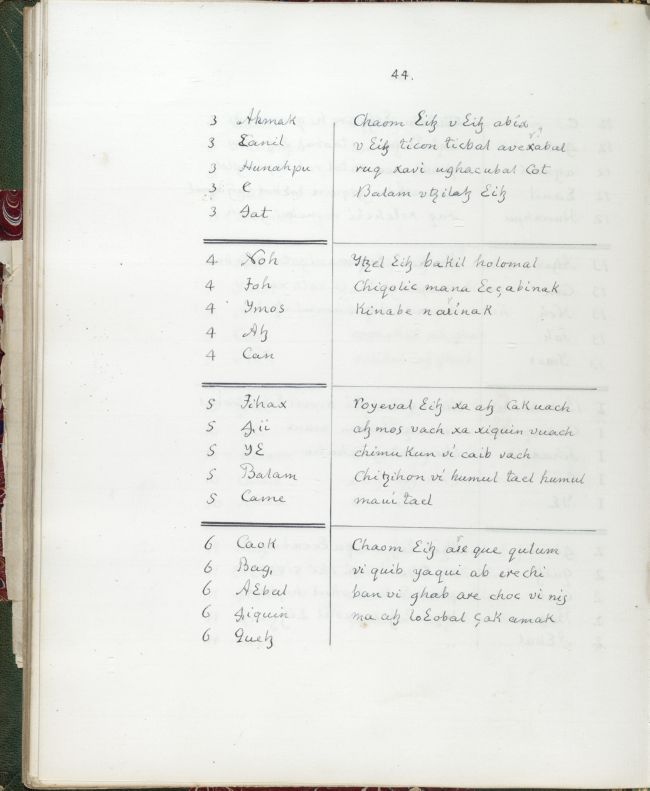 44.
3 Akmak Chaom Ɛiꜩ v Ɛiꜩ abix
3 Ɛanil v Ɛiꜩ ticon ticbal avexabal
3 Hunahpu ruq xavi ughacubal Cot
3 Ɛ Balam vtzilaꜩ Ɛiꜩ
3 Ɉat
4 Noh Ytzel Ɛiꜩ bakil holomal
4 Ɉoh Chiqolic mana Ɛeçabinak
4 Ymos Kinabe narinak
4 Aꜩ
4 Can
5 Ɉihax royeval Ɛiꜩ xa aꜩ Cakuach
5 Ɉii aꜩ mos vach xa xiquin vuach
5 YƐ chimuKun vi caib vach
5 Balam Chitzihon vi humul tael humul
5 Came maui tael
6 Caok Chaom Ɛiꜩ are que qulum
6 Baɉ. vi quib yaqui ab erechi
6 AƐbal ban vi ghab are choc vi niʒ
6 Ɉiquin ma aꜩ loƐobal Çak amak
6 Queꜩ